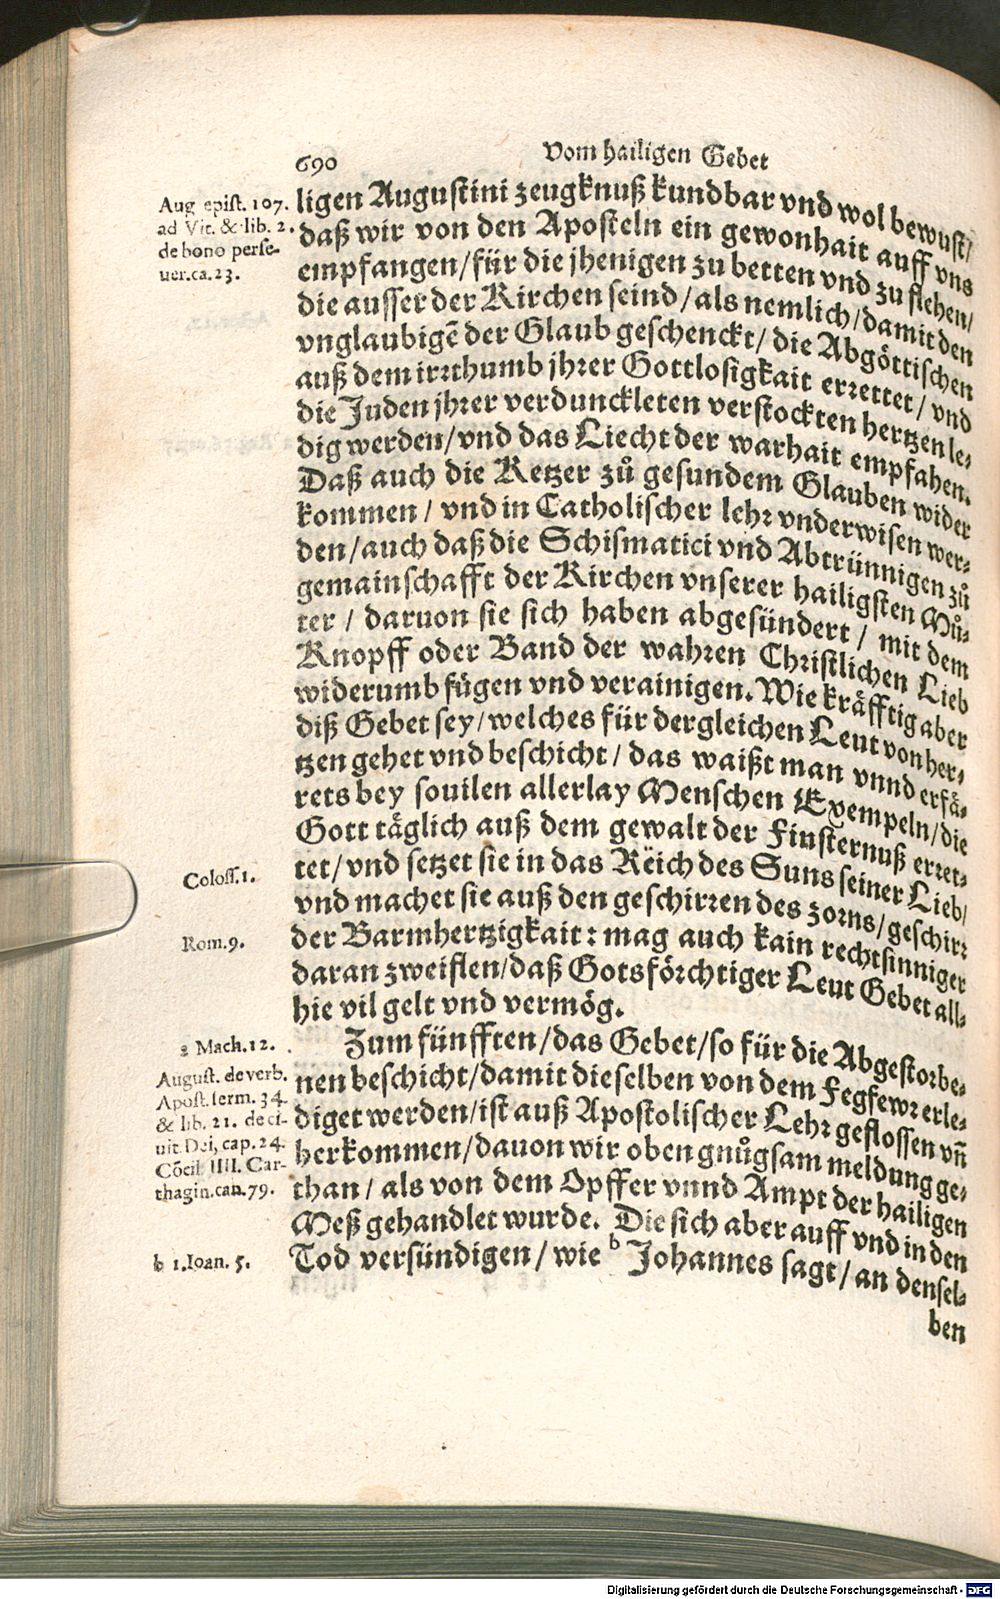 690 Vom hailigen Gebet
Aug. epist. 107.
ad Vit. & lib. 2.
de bono perse-
uer. ca. 23.
ligen Augustini zeugknuß kundbar vnd wol bewust/
daß wir von den Aposteln ein gewonhait auff vns
empfangen/für die jhenigen zu betten vnd zu flehen/
die ausser der Kirchen seind/als nemlich/damit den
vnglaubigẽ der Glaub geschenckt/ die Abgöttischen
auß dem irrthumb jhrer Gottlosigkait errettet/ vnd
die Juden jhrer verdunckleten verstockten hertzen le-
dig werden/vnd das Liecht der warhait empfahen.
Daß auch die Ketzer zů gesundem Glauben wider
kommen / vnd in Catholischer lehr vnderwisen wer-
den/auch daß die Schismatici vnd Abtrünnigen zů
gemainschafft der Kirchen vnserer hailigsten Můt-
ter / daruon sie sich haben abgesündert / mit dem
Knopff oder Band der wahren Christlichen Lieb
widerumb fügen vnd verainigen. Wie kräfftig aber
diß Gebet sey/welches für dergleichen Leut von her-
tzen gehet vnd beschicht/ das waißt man vnnd erfä-
rets bey souilen allerlay Menschen Exempeln/die
Gott täglich auß dem gewalt der Finsternuß erret-
Coloss. 1.
tet/vnd setzet sie in das Reich des Suns seiner Lieb/
vnd machet sie auß den geschirren des zorns/geschirr
Rom. 9.
der Barmhertzigkait: mag auch kain rechtsinniger
daran zweiflen/daß Gotsförchtiger Leut Gebet all-
hie vil gelt vnd vermög.
2 Mach. 12.
August. de verb.
Apost. serm. 34.
& lib. 21. de ci-
uit. Dei, cap. 24.
Cõcil. IIII. Car-
thagin. can. 79.
Zum fünfften/das Gebet/so für die Abgestorbe-
nen beschicht/damit dieselben von dem Fegfewr erle-
diget werden/ist auß Apostolischer Lehr geflossen vñ
herkommen/dauon wir oben gnůgsam meldung ge-
than/ als von dem Opffer vnnd Ampt der hailigen
Meß gehandlet wurde. Die sich aber auff vnd in den
b 1. Ioan. 5.
Tod versündigen/ wie b Johannes sagt/ an densel-
ben
Digitalisierung gefördert durch die Deutsche Forschungsgemeinschaft - DFG